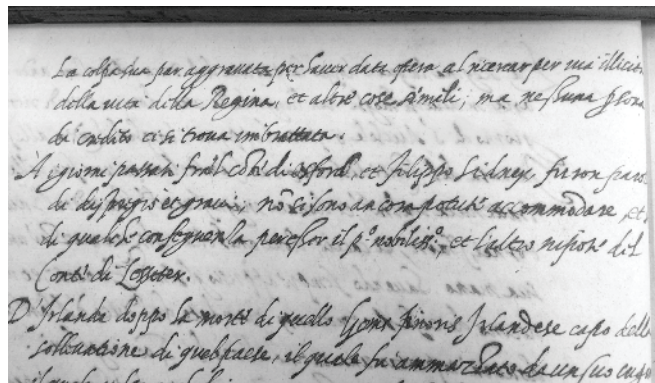 La colpa sua par aggravata per haver data opera al ricercar per via illicita
della vita della Regina, et altre cose simili; ma nessuna persona
di credito ci si trova imbrattata.
A i giorni passati fra'l Cote di Oxford, et Filippo Sidney, furon parole
di dispregio et gravi, nō si sono ancora potute accommodare, et
di qualche conseguenza per esser il pº nobilissº, et l'altro nipote del
Conte di Lessiter.
D'Irlanda doppo la morte di quello Irlandese capo della
sollevatione di quel paese, il quale fu ammazzato da un suo